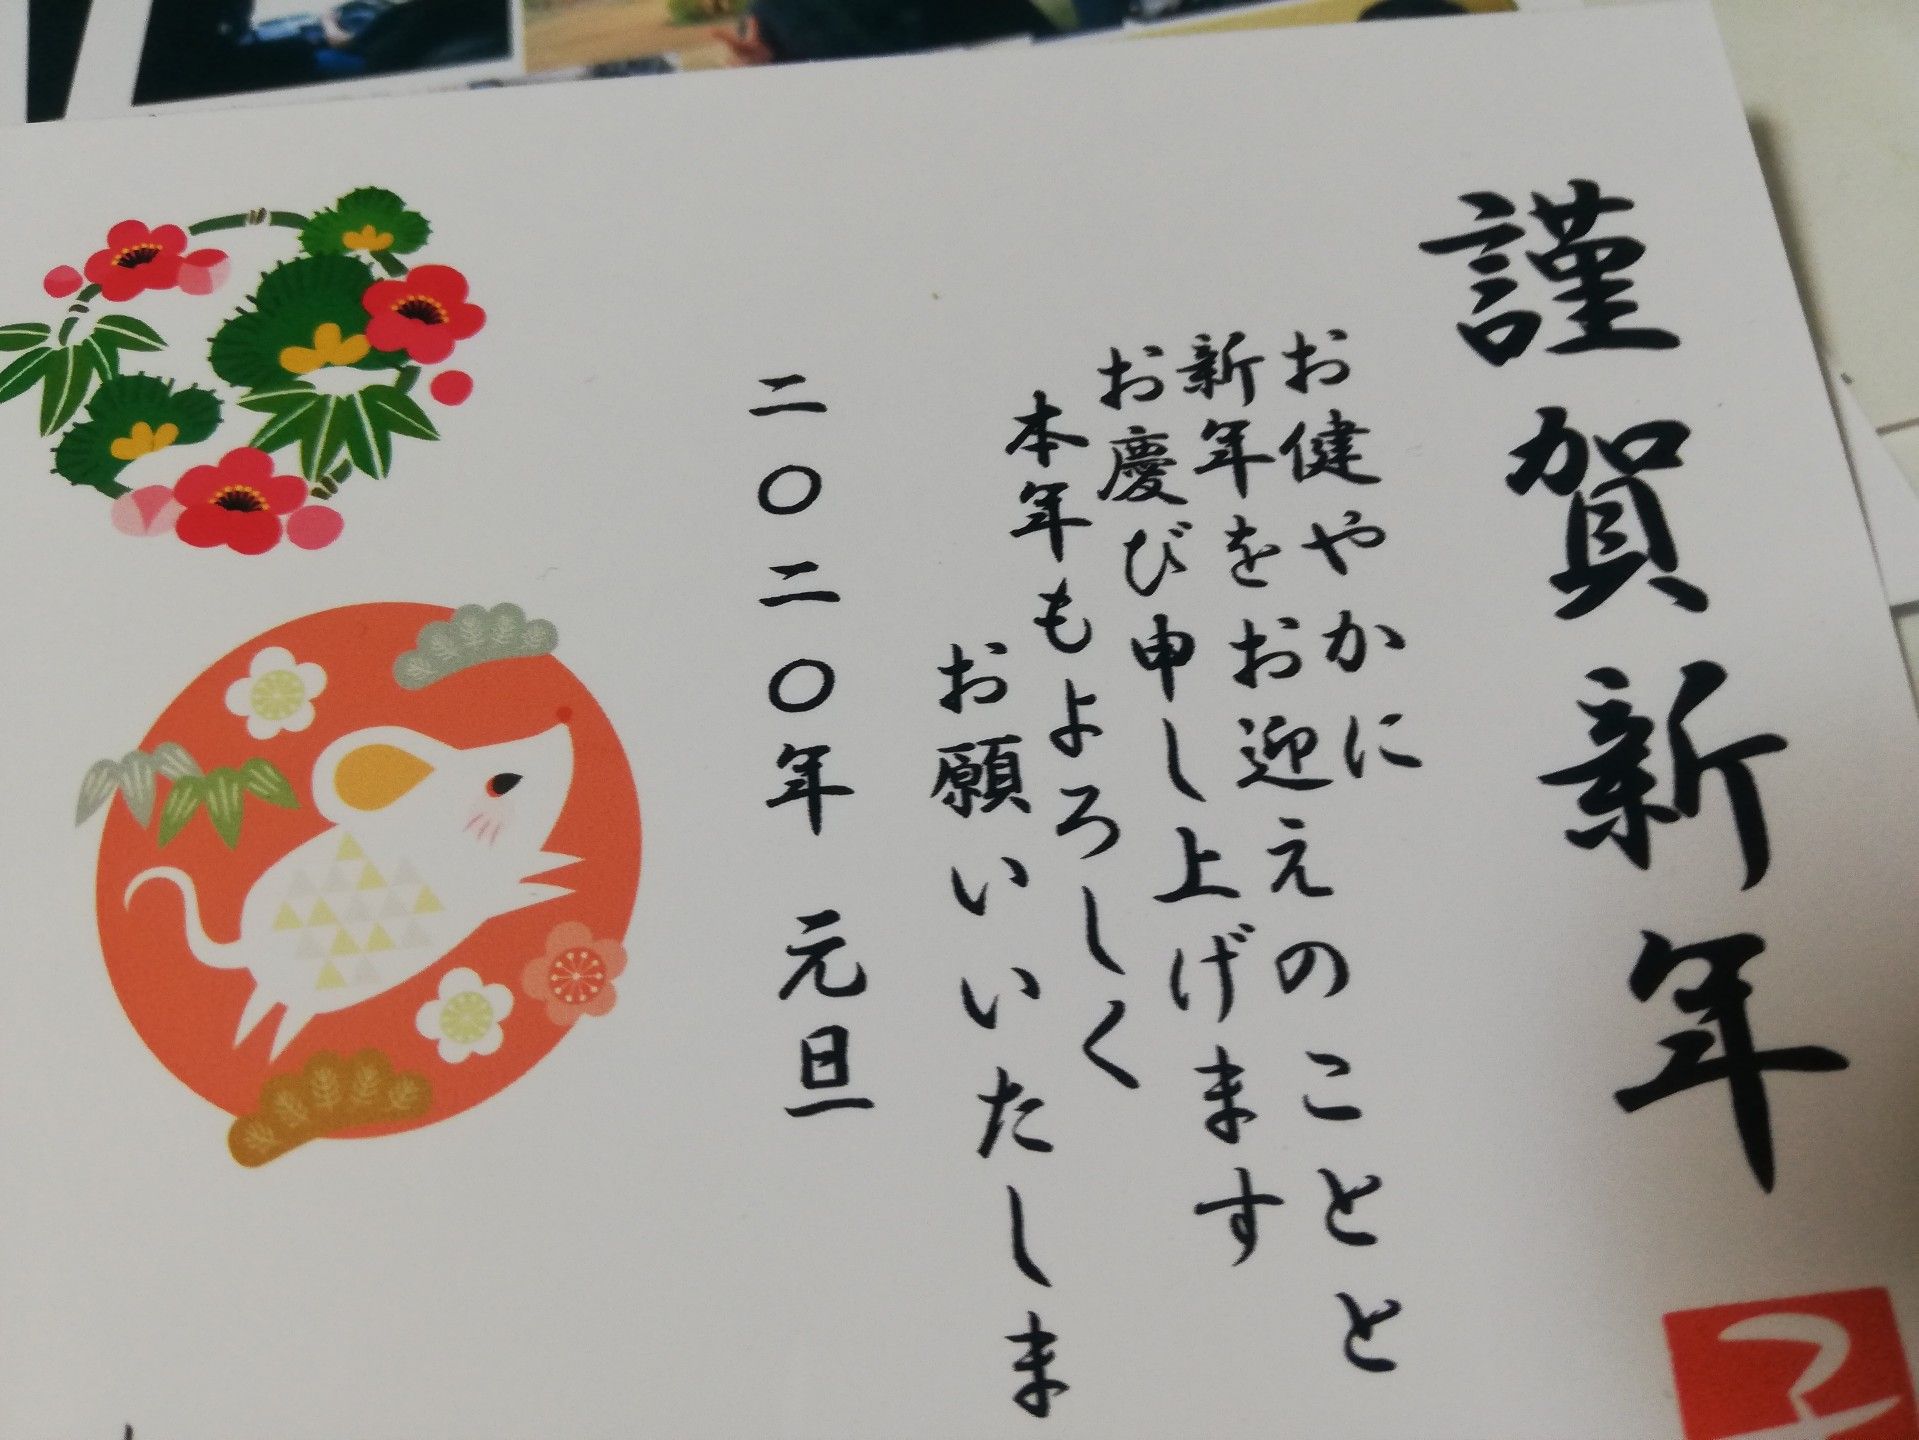 謹賀新年
お健やかに
新年をお迎えのことと
お慶び申し上げます
本年もよろしく
お願いいたしま
二〇二〇年 元旦
子